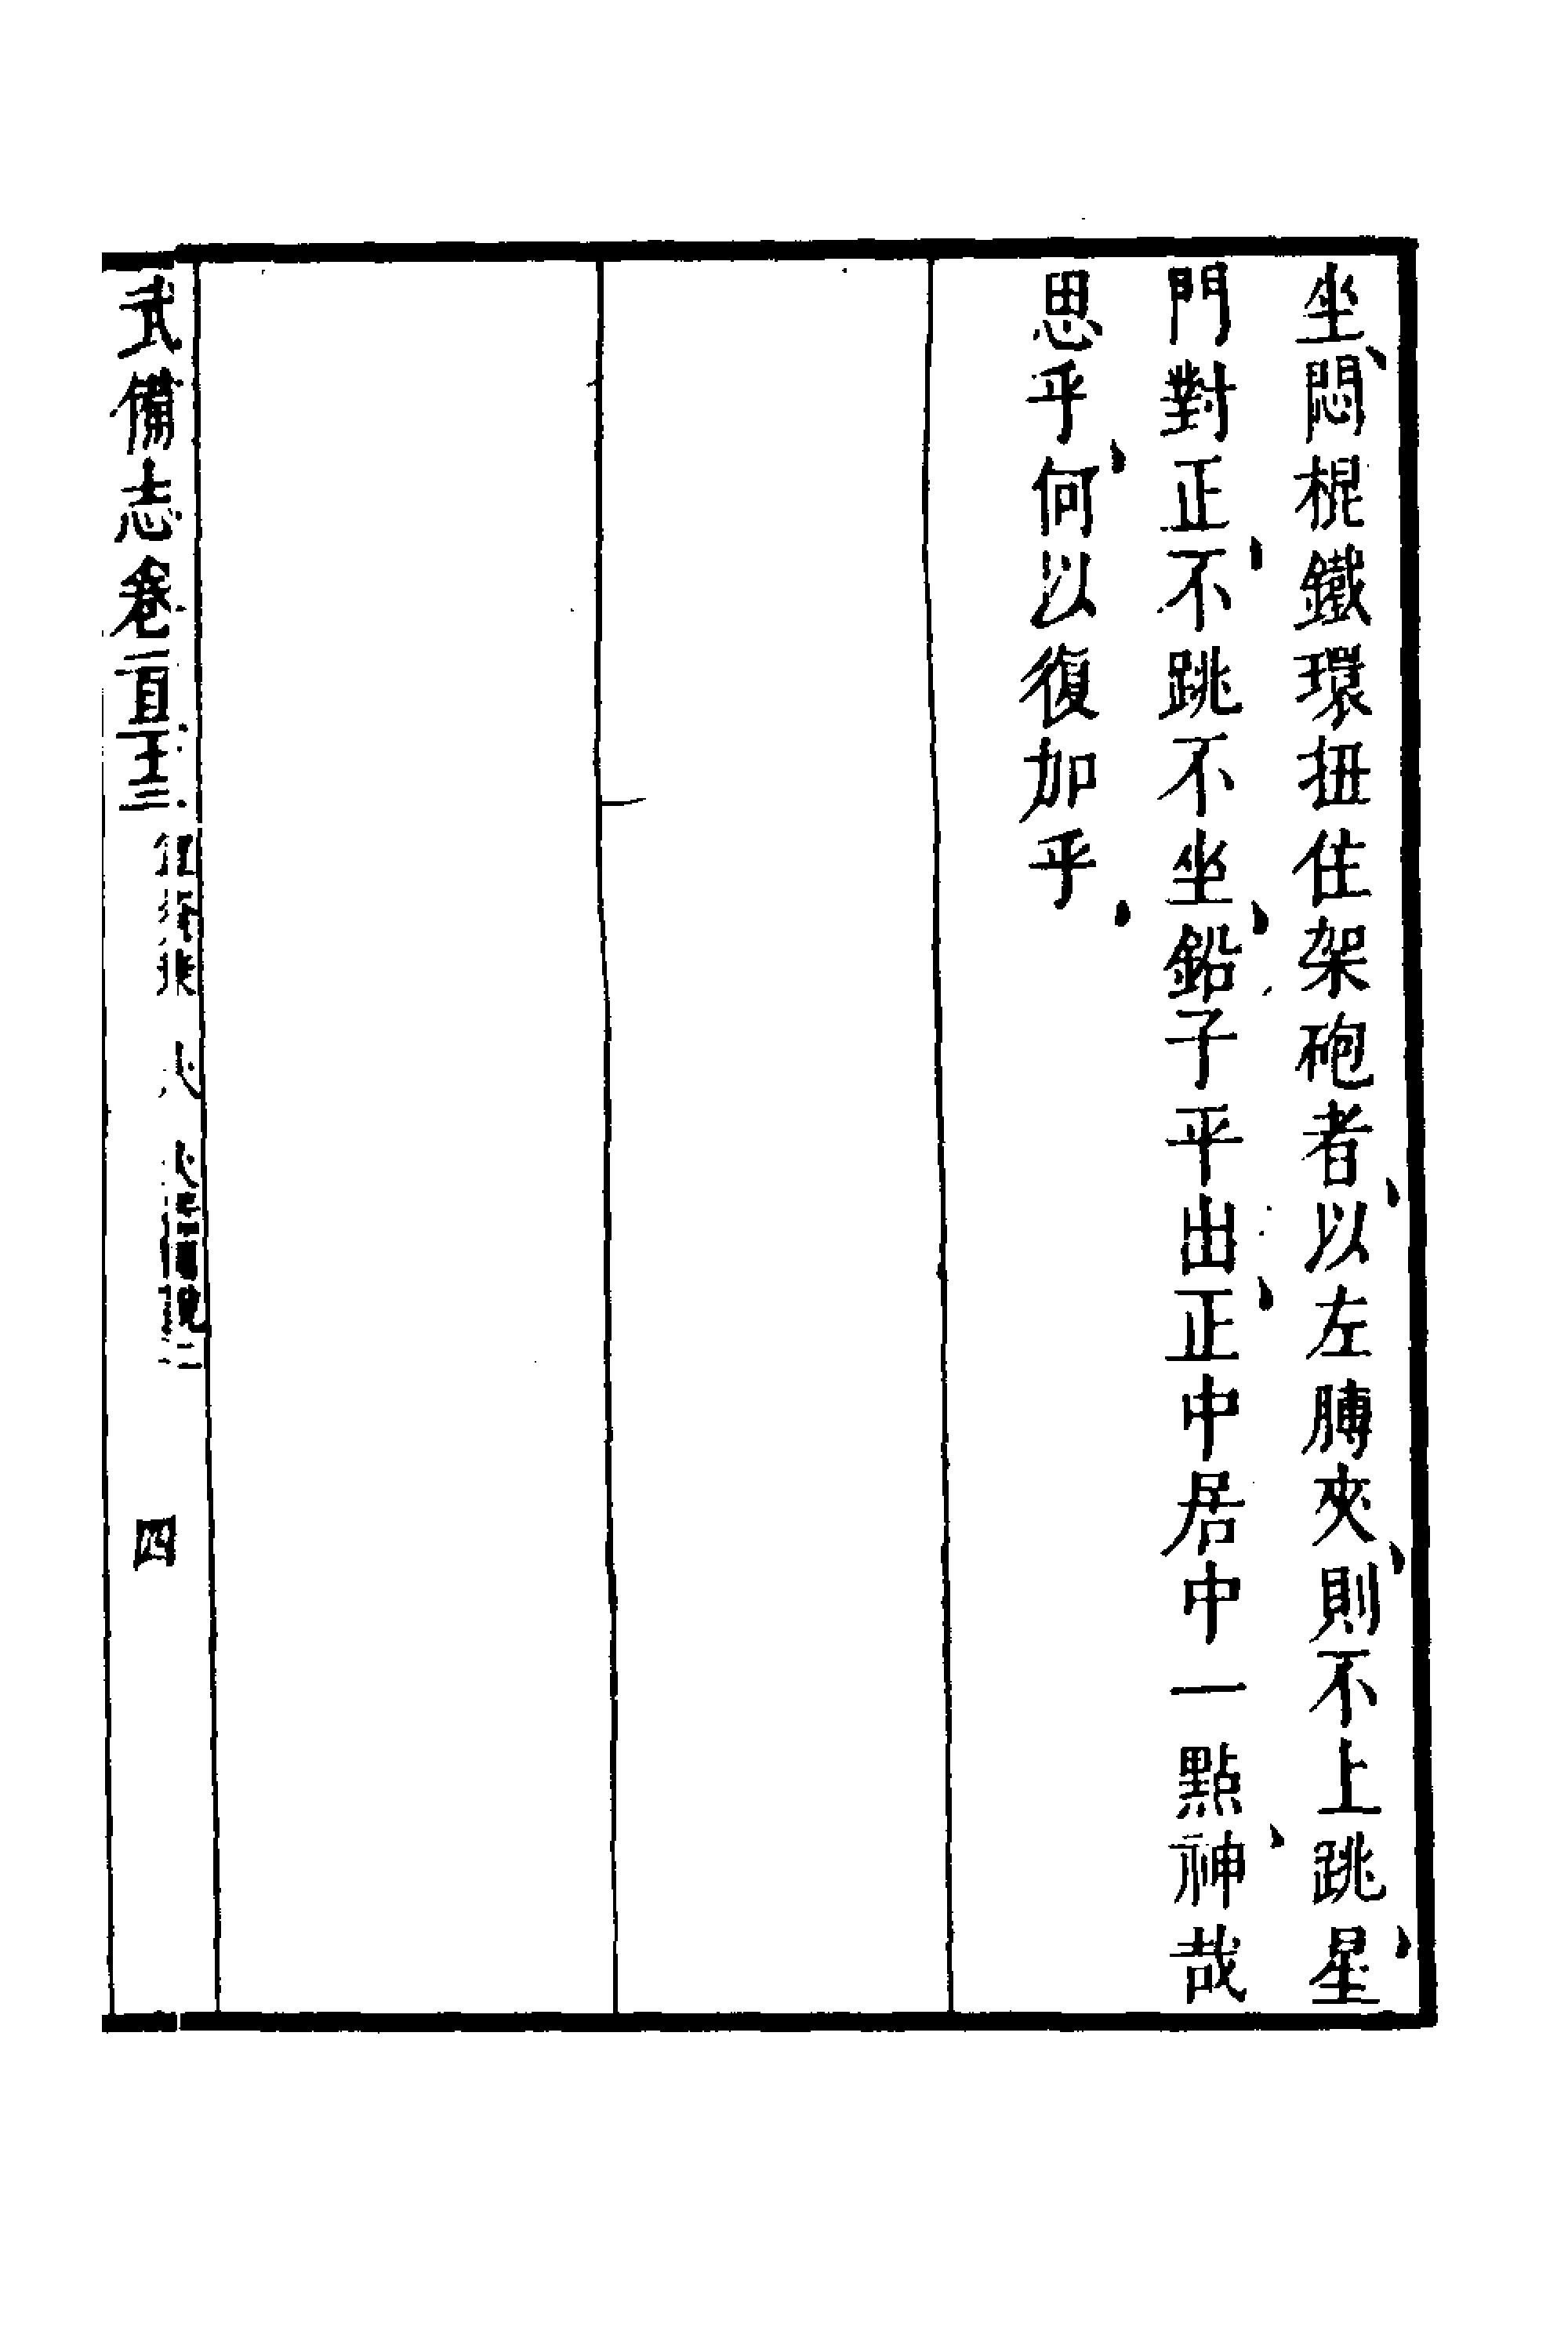 坐悶棍鐵環扭住架砲者以左膊夾則不上跳星
門對正不跳不坐鉛子平出正中居中一點神哉
思乎何以復加乎
武備志卷一百二十三
四